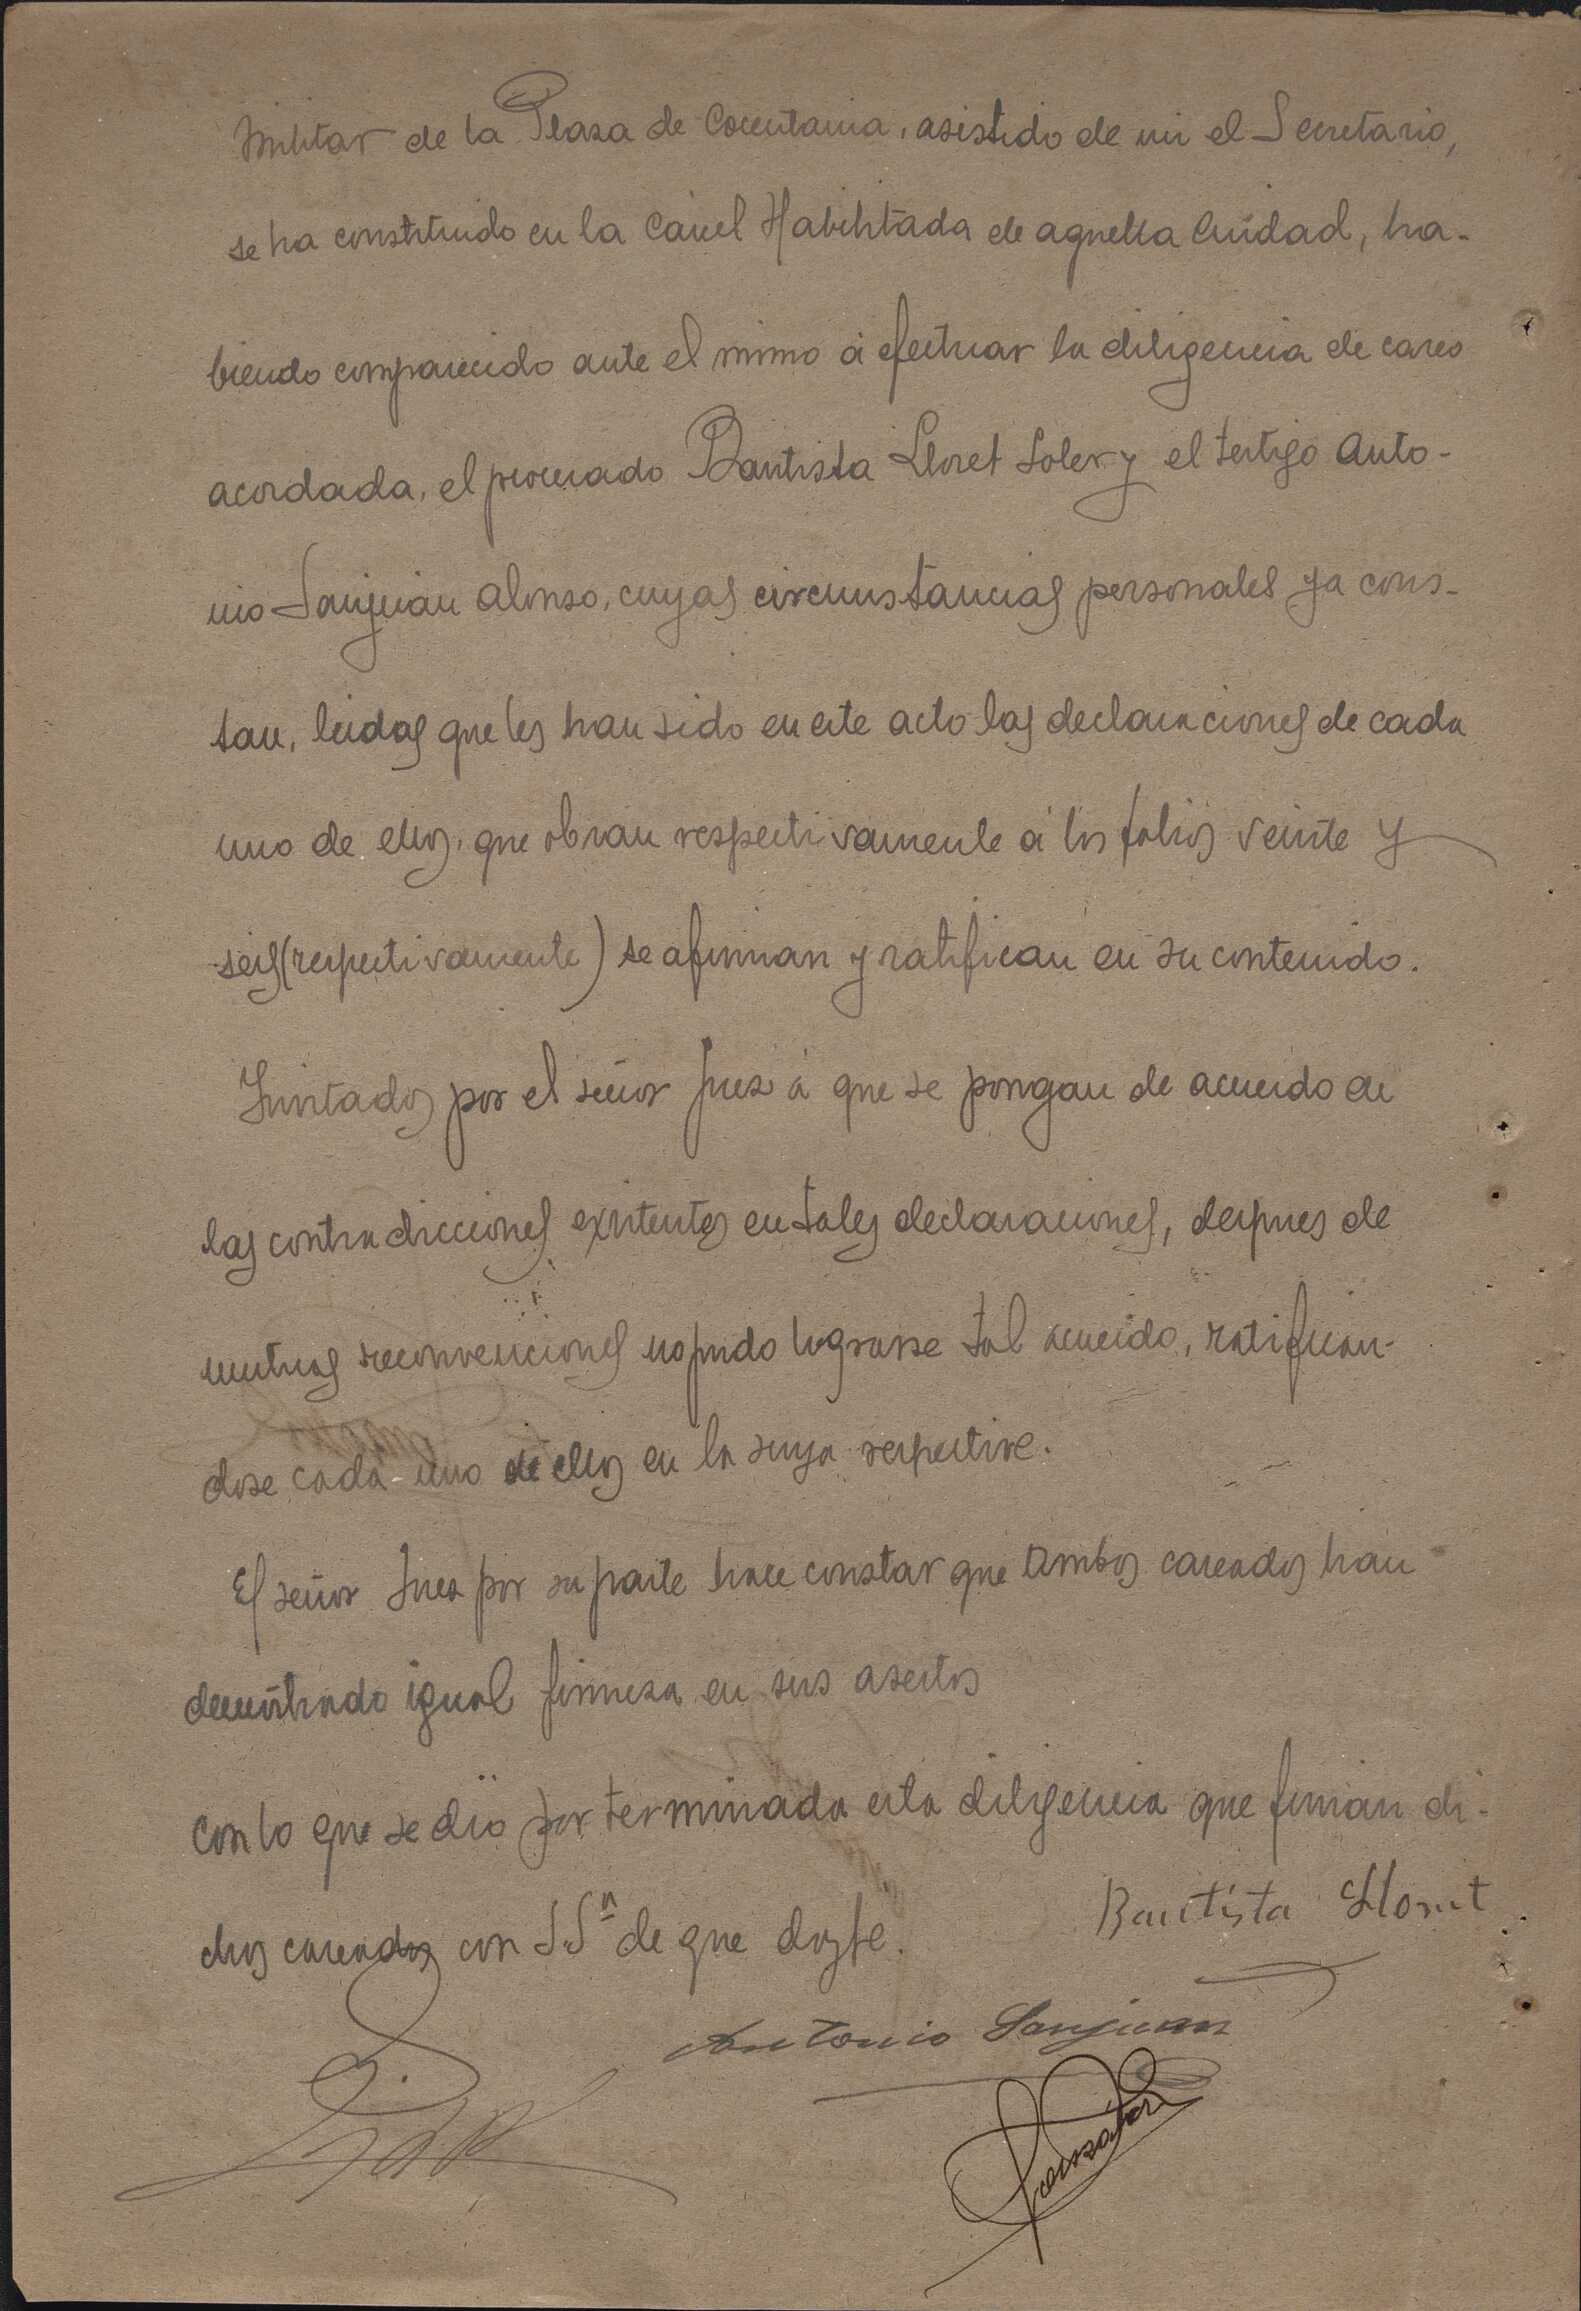 Militar de la Plaza de Cocentaina, asistido de mi el Secretario,
se ha constituido en la Carcel Habilitada de aquella Ciudad, ha-
biendo comparecido ante el mismo á efectuar la diligencia de careo
acordada, el procesado Bautista Lloret Soler y el testigo Anto-
nio Sanjuán Alonso, cuyas circunstancias personales ya cons-
tan, leidas que les han sido en este acto las declaraciones de cada
uno de ellos, que obran respectivamente á los folios veinte y
seis (respectivamente) se afirman y ratifican en su contenido.
Invitados por el señor Juez á que se pongan de acuerdo en
las contradicciones existentes en tales declaraciones, despues de
mutuas reconvenciones no pudo lograrse tal acuerdo, ratifican-
dose cada uno de ellos en la suya respectiva.
El señor Juez por su parte hace constar que ambos careados han
demostrado igual firmeza en sus asertos
Con lo que se dió por terminada esta diligencia que firman di-
chos careados con S.Sª de que doy fe.
Bautista Lloret
Antonio Sanjuan